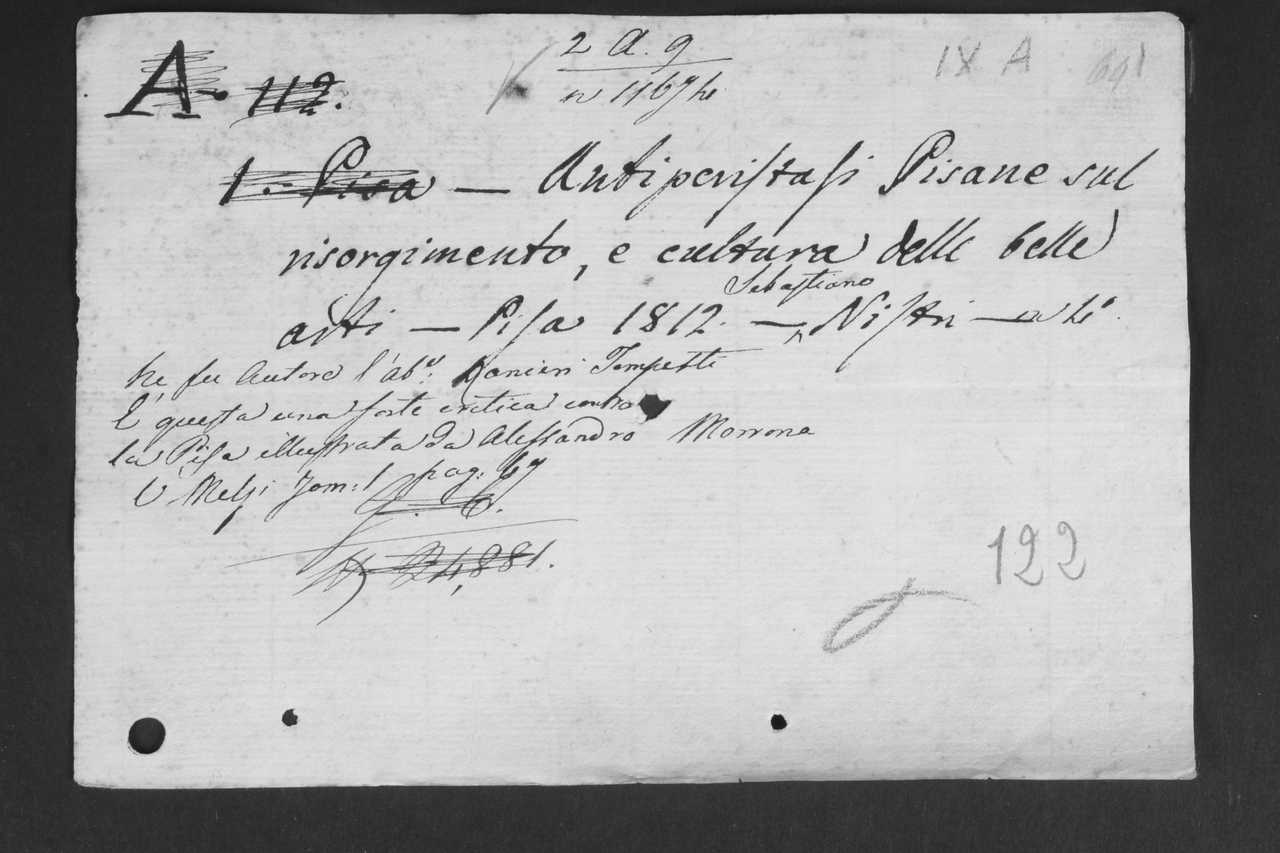 2 A. 9.
IX A
A. 112.
1.- Pisa — Antiperistasi Pisane sul
risorgimento, e cultura delle belle
arti — Pisa 1812. — Sebastiano Nistri — in
Ne fu Autore l'ab.e Ranieri Tempesti
E' questa una forte critica contro
la Pisa illustrata da Alessandro Morrona
V Melzi Tom: 1 pag: 67
24,881.
122